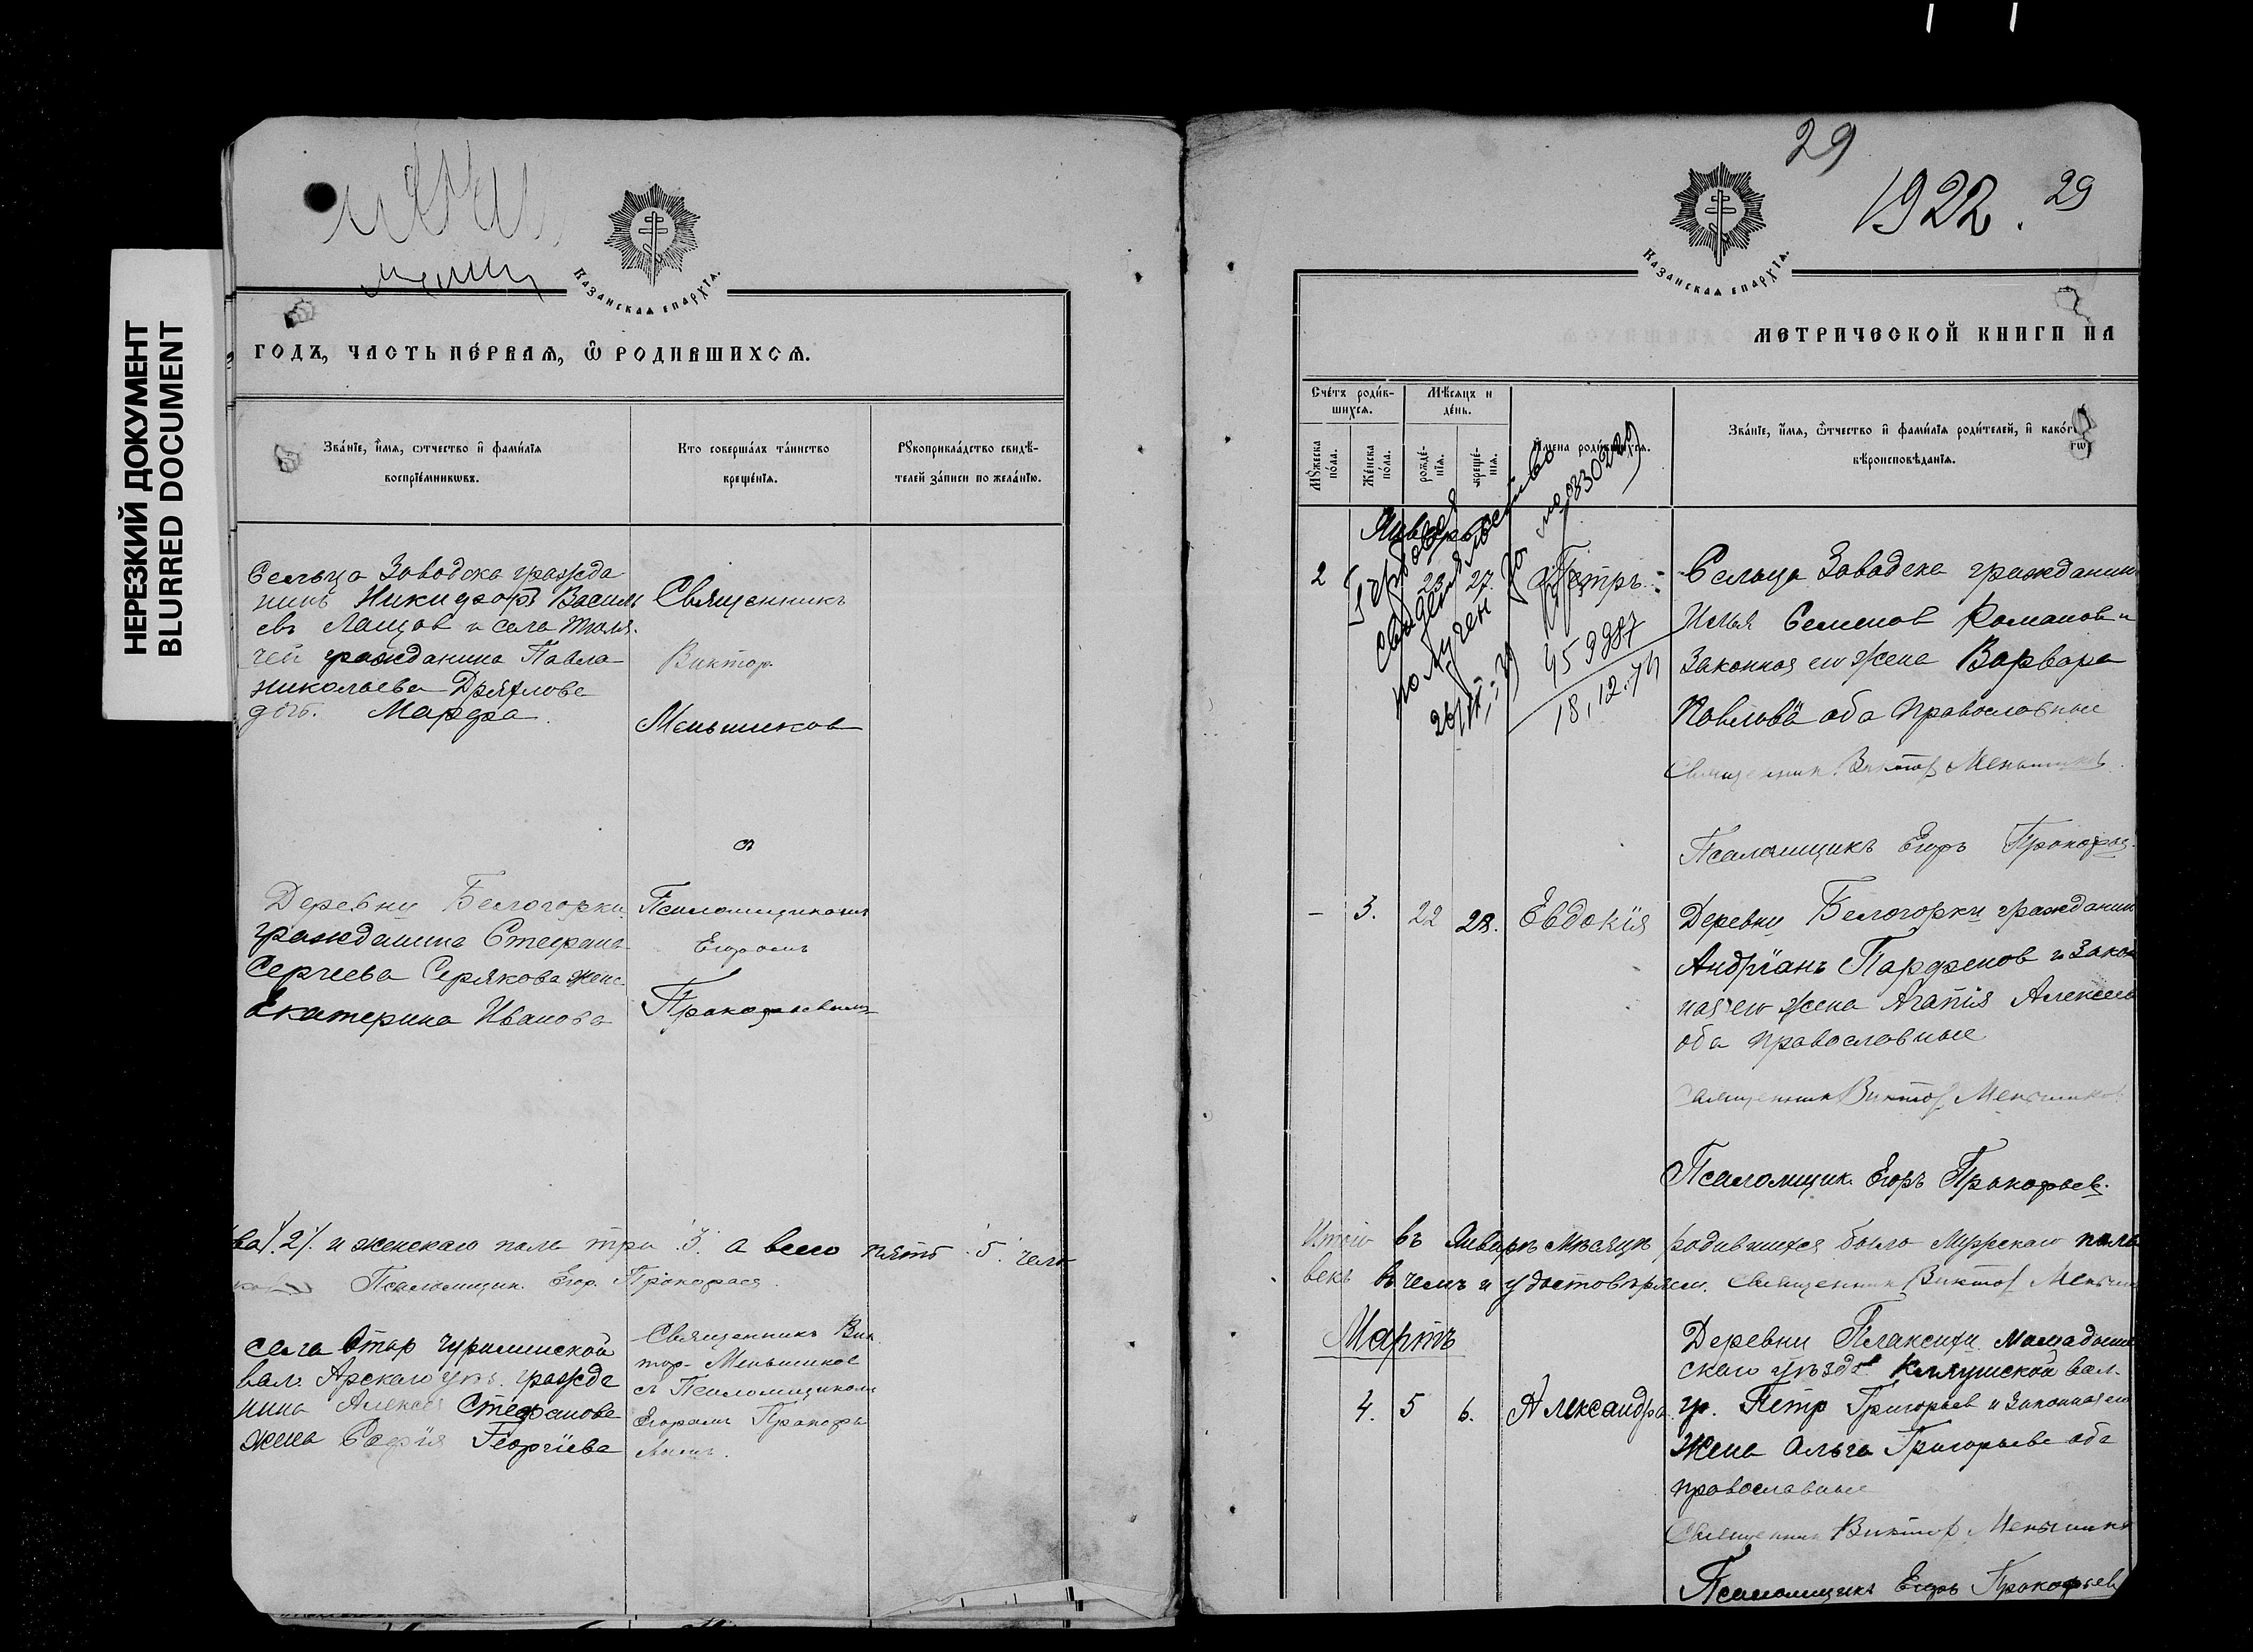 НЕРЕЗКИЙ ДОКУМЕНТ
BLURRED DOCUMENT
Казанская епархїа.
годъ, часть пе́рвая, ѡ҆ родившихсѧ.
Зва́нїе, и҆́мѧ, ѻтчество и҆ фами́лїѧ воспрїе́мникѡвъ.
Кто соверша́лъ та́инство креще́нїѧ.
Рꙋкоприкла́дство свидѣ́телей за́писи по жела́нїю.
Сельца Заводска гражда
нинъ Никифоръ Василь
евъ Лащов и села Тюля-
чей гражданина Павла
Николаева Дряхлова
доч. Марфа.
Священникъ
Виктор
Меньшиков
Деревни Белогорки
гражданина Стефана
Сергиева Серякова жена
Екатерина Иванова
Псаломщикомъ
Егоромъ
Прокофьевымъ
ва/.2/. и женскаго пола три .3. а всего пять .5. чело
Псаломщик. Егор. Прокофьев.
села Стар Чурилинской
вал. Арскаго уѣз. гражда
нина Алексея Стефанова
жена София Георгїева
Священникъ Вик
тор Меньшиков
съ Псаломщикомъ
Егоромъ Прокофь
29
1922. 29
Казанская епархїа.
метрической книги на
Сче́тъ роди́вшихсѧ.
Мꙋжеска по́ла.
Же́нска по́ла.
Мѣ́сѧцъ и де́нь.
рожде́нїѧ.
креще́нїѧ.
И҆мена роди́вшихсѧ.
Зва́нїе, и҆́мѧ, ѻ҆́тчество и҆ фами́лїѧ роди́телей, и҆ како́гѡ
вѣроисповѣ́данїѧ.
Январь
Гербовое
свидетельство
получен
459987
18.12.74
2 23 27. Петръ.
Сельца Заводска гражданин
Илья Семенов Романов и
Законная его жена Варвара
Павлова оба православные
Священник Виктор Меньшиков
Псаломщикъ Егоръ Прокофьев.
- 3. 22 23. Евдокїя
Деревни Белогорки гражданин
Андрїанъ Парфенов и Закон
ная его жена Агапїя Алексеева
оба православные
Священник Виктор Меньшиков
Псаломщик. Егоръ Прокофьев.
Итого въ Январѣ мѣсяцѣ родившихся было мужскаго пола
векъ въ чемъ и удостовѣряем. Священник Виктор Меньши
Мартъ
4. 5 6. Александра
Деревни Плаксихи Мамадыш
скаго уѣзда Кляушской вал.
гр. Петр Григорьев и Законная его
жена Ольга Григорьева оба
православные
Священник Виктор Меньшиков
Псаломщикъ Егоръ Прокофьев